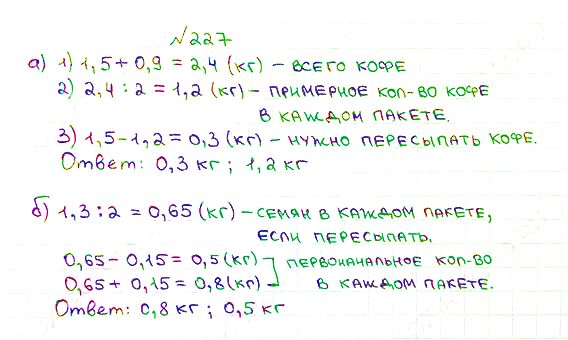 №227
а) 1) 1,5 + 0,9 = 2,4 (кг) – ВСЕГО КОФЕ
2) 2,4 : 2 = 1,2 (кг) – ПРИМЕРНОЕ КОЛ-ВО КОФЕ
В КАЖДОМ ПАКЕТЕ.
3) 1,5 – 1,2 = 0,3 (кг) – НУЖНО ПЕРЕСЫПАТЬ КОФЕ.
Ответ: 0,3 кг ; 1,2 кг
б) 1,3 : 2 = 0,65 (кг) – СЕМЯН В КАЖДОМ ПАКЕТЕ,
ЕСЛИ ПЕРЕСЫПАТЬ.
0,65 – 0,15 = 0,5 (кг) ПЕРВОНАЧАЛЬНОЕ КОЛ-ВО
0,65 + 0,15 = 0,8 (кг) В КАЖДОМ ПАКЕТЕ.
Ответ: 0,8 кг ; 0,5 кг